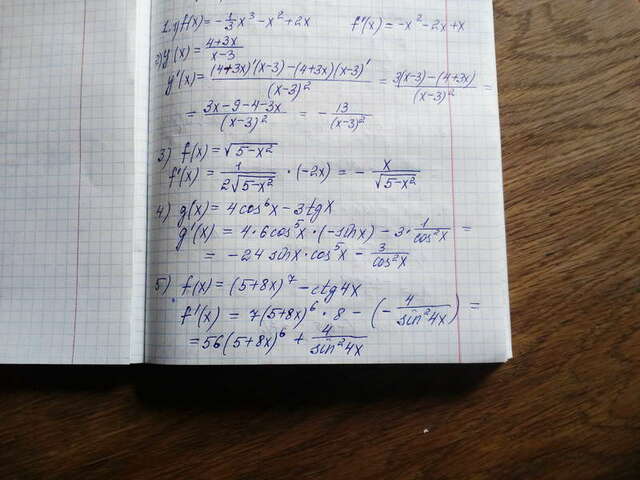 1. 1) f(x) = -1/3 x³ - x² + 2x f'(x) = -x² - 2x + x
2) y(x) = (4+3x)/(x-3)
y'(x) = ((4+3x)'(x-3) - (4+3x)(x-3)')/(x-3)² = (3(x-3) - (4+3x))/(x-3)² =
= (3x-9-4-3x)/(x-3)² = - 13/(x-3)²
3) f(x) = √(5-x²)
f'(x) = 1/(2√(5-x²)) · (-2x) = - x/√(5-x²)
4) g(x) = 4cos⁶x - 3tgx
g'(x) = 4·6cos⁵x · (-sinx) - 3 · 1/cos²x =
= -24 sinx · cos⁵x - 3/cos²x
5) f(x) = (5+8x)⁷ - ctg4x
f'(x) = 7(5+8x)⁶ · 8 - (- 4/sin²4x) =
= 56(5+8x)⁶ + 4/sin²4x